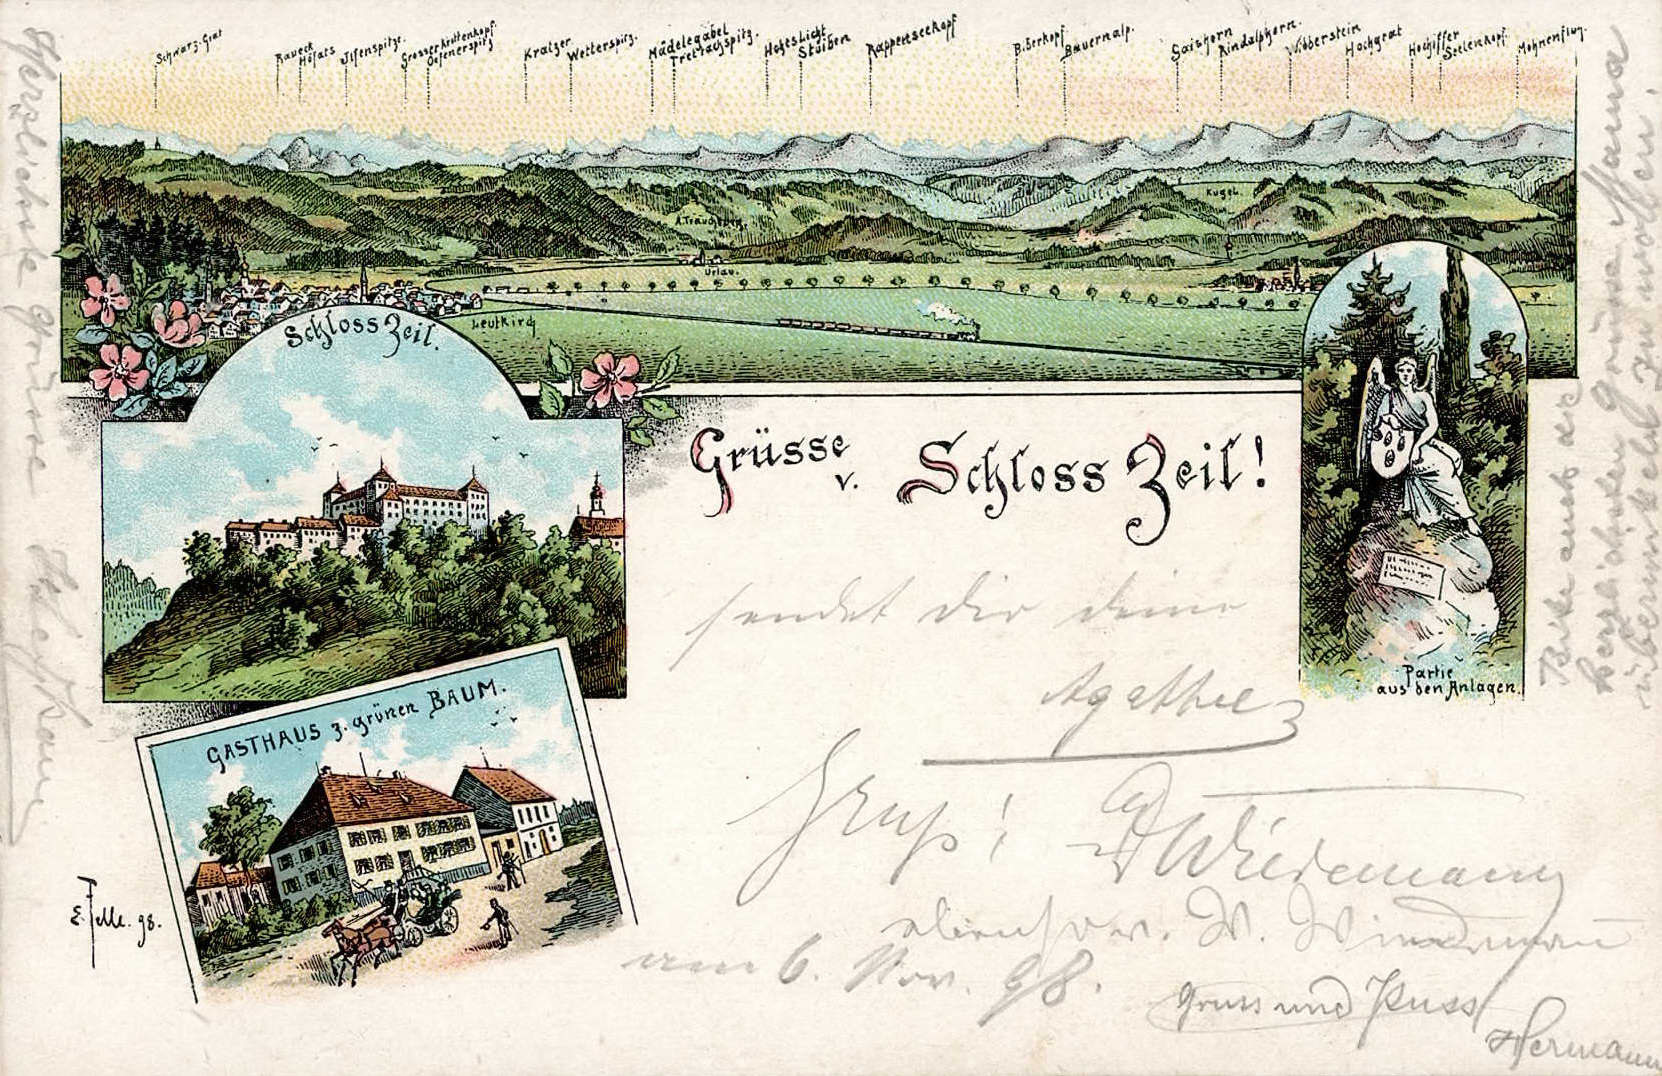 Schwarz. Grat
Raueck
Höfats
Jlfenspitze.
Grosser Krottenkopf.
Oefnerspitz
Kratzer
Wetterspitz.
Mädelegabel
Trettachspitz.
Hohes Licht
Stuiben
Rappenseekopf
Biberkopf
Bauernalp.
Gaishorn
Rindalphorn.
Widderstein
Hochgrat
Hochiffer
Seelenkopf.
Mohnenfluh.
A. Trauchburg.
Kugel.
Urlau.
Leutkirch
Schloss Zeil.
Grüsse
v. Schloss Zeil!
Partie
aus den Anlagen.
GASTHAUS z. grünen BAUM.
E. Felle. 98.
sendet dir deine
Agathe
Gruß!
Wiedemann
W. Wiedemann
am 6. Nov. 98.
Gruss und Kuss
Hermann
Herzliche Grüsse
Bitte auch die
herzlichen Grüsse Mama
übermittelt zu wollen.